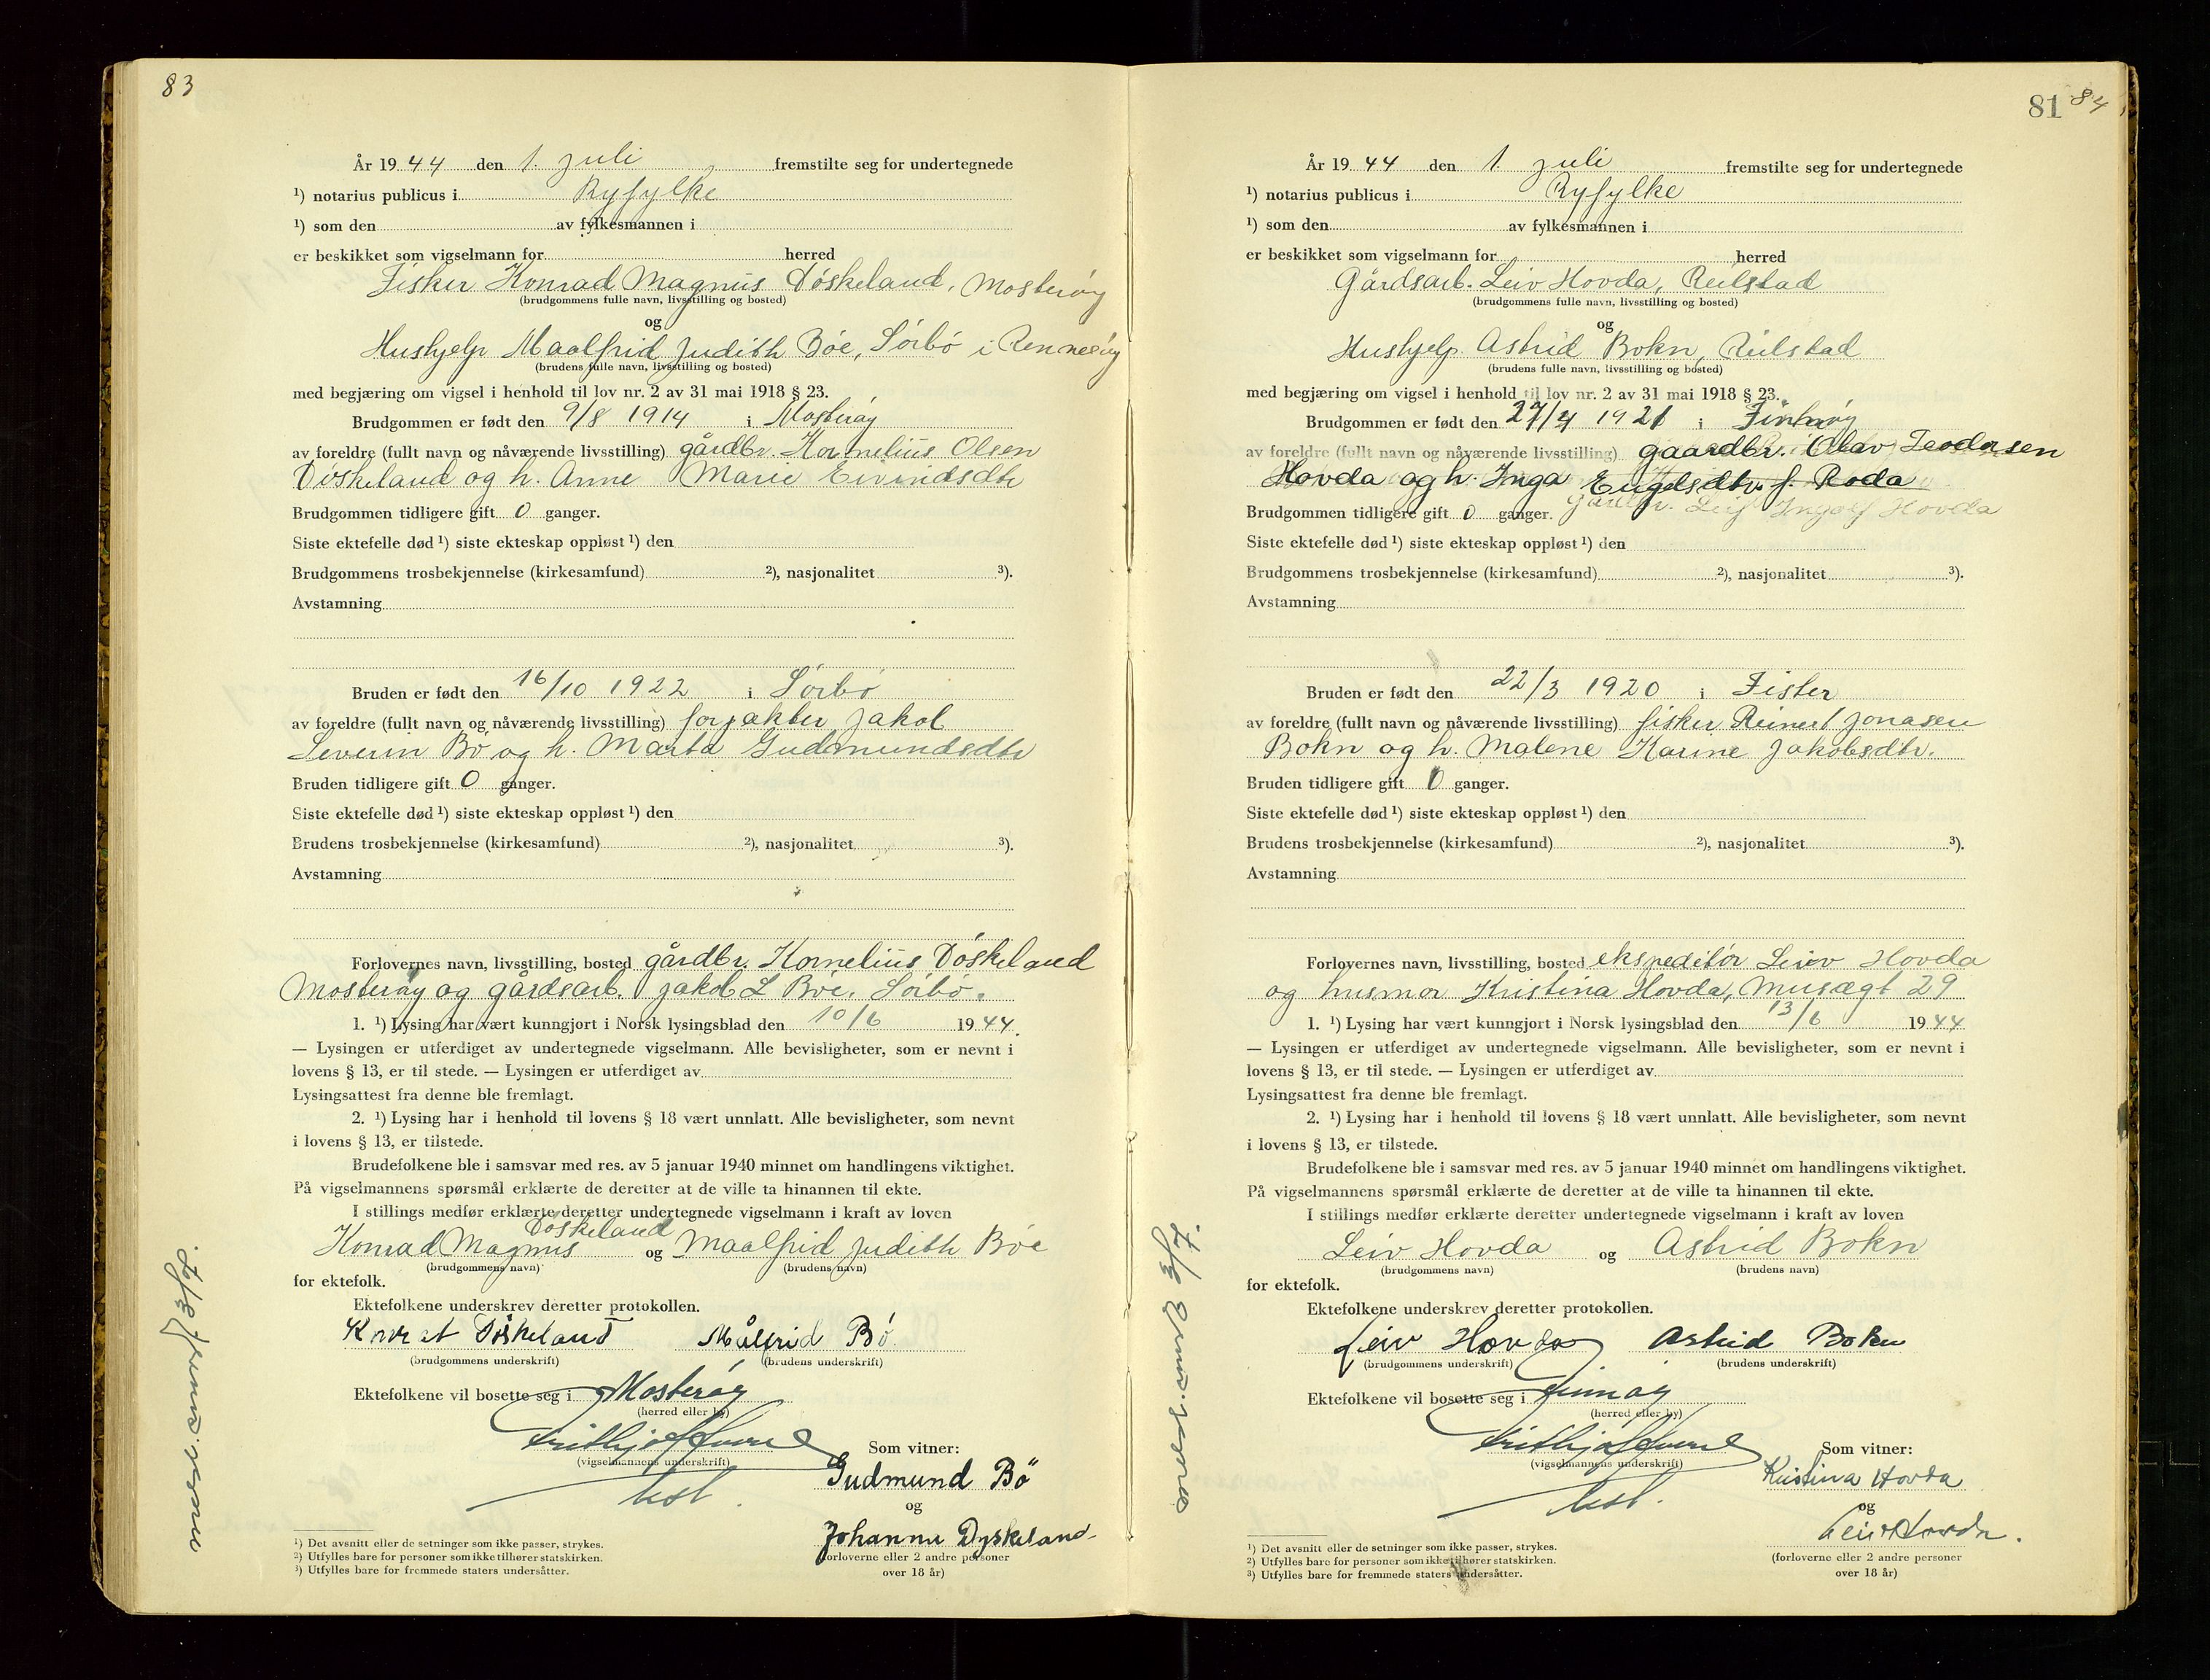 83
År 1944 den 1. juli fremstilte seg for undertegnede
¹) notarius publicus i Ryfylke
¹) som den av fylkesmannen i
er beskikket som vigselmann for herred
Fisker Konrad Magnus Døskeland, Mosterøy
(brudgommens fulle navn, livsstilling og bosted)
og
Hushjelp Maalfrid Judith Bøe, Sörbö i Rennesøy
(brudens fulle navn, livsstilling og bosted)
med begjæring om vigsel i henhold til lov nr. 2 av 31 mai 1918 § 23.
Brudgommen er født den 9/8 1914 i Mosterøy
av foreldre (fullt navn og nåværende livsstilling) gårdbr. Kornelius Olsen
Døskeland og h. Anne Marie Eivindsdtr
Brudgommen tidligere gift 0 ganger.
Siste ektefelle død ¹) siste ekteskap oppløst ¹) den
Brudgommens trosbekjennelse (kirkesamfund) ²), nasjonalitet ³).
Avstamning
Bruden er født den 16/10 1922 i Sörbö
av foreldre (fullt navn og nåværende livsstilling) forpakter Jakob
Severin Bö og h. Marta Gudmundsdtr
Bruden tidligere gift 0 ganger.
Siste ektefelle død ¹) siste ekteskap oppløst ¹) den
Brudens trosbekjennelse (kirkesamfund) ²), nasjonalitet ³).
Avstamning
Forlovernes navn, livsstilling, bosted gårdbr. Kornelius Døskeland
Mosterøy og gårdsarb. Jakob L Bøe, Sörbö.
1. ¹) Lysing har vært kunngjort i Norsk lysingsblad den 10/6 1944.
— Lysingen er utferdiget av undertegnede vigselmann. Alle bevisligheter, som er nevnt i
lovens § 13, er til stede. — Lysingen er utferdiget av
Lysingsattest fra denne ble fremlagt.
2. ¹) Lysing har i henhold til lovens § 18 vært unnlatt. Alle bevisligheter, som nevnt
i lovens § 13, er tilstede.
Brudefolkene ble i samsvar med res. av 5 januar 1940 minnet om handlingens viktighet.
På vigselmannens spørsmål erklærte de deretter at de ville ta hinannen til ekte.
I stillings medfør erklærte deretter undertegnede vigselmann i kraft av loven
Døskeland
Konrad Magnus og Maalfrid Judith Bøe
(brudgommens navn) (brudens navn)
for ektefolk.
Ektefolkene underskrev deretter protokollen.
Konrat Döskeland Målfrid Bö.
(brudgommens underskrift) (brudens underskrift)
Ektefolkene vil bosette seg i Mosterøy
(herred eller by)
Som vitner:
(vigselmannens underskrift)
Gudmund Bö
og
Johanne Dyskeland
forloverne eller 2 andre personer
over 18 år)
¹) Det avsnitt eller de setninger som ikke passer, strykes.
²) Utfylles bare for personer som ikke tilhører statskirken.
³) Utfylles bare for fremmede staters undersåtter.
81 84
År 1944 den 1. juli fremstilte seg for undertegnede
¹) notarius publicus i Ryfylke
¹) som den av fylkesmannen i
er beskikket som vigselmann for herred
Gårdsarb. Leiv Hovda, Reilstad
(brudgommens fulle navn, livsstilling og bosted)
og
Hushjelp Astrid Bokn, Reilstad
(brudens fulle navn, livsstilling og bosted)
med begjæring om vigsel i henhold til lov nr. 2 av 31 mai 1918 § 23.
Brudgommen er født den 27/4 1921 i Finnøy
av foreldre (fullt navn og nåværende livsstilling) gaardbr. Olav Teodorsen
Hovda og h. Inga Engelsdtr. f. Roda
Brudgommen tidligere gift 0 ganger. gårdbr. Leif Ingolf Hovda
Siste ektefelle død ¹) siste ekteskap oppløst ¹) den
Brudgommens trosbekjennelse (kirkesamfund) ²), nasjonalitet ³).
Avstamning
Bruden er født den 22/3 1920 i Fister
av foreldre (fullt navn og nåværende livsstilling) fisker Reinert Jonasen
Bokn og h. Malene Karine Jakobsdtr.
Bruden tidligere gift 0 ganger.
Siste ektefelle død ¹) siste ekteskap oppløst ¹) den
Brudens trosbekjennelse (kirkesamfund) ²), nasjonalitet ³).
Avstamning
Forlovernes navn, livsstilling, bosted ekspeditør Leiv Hovda
og husmor Kristina Hovda, Musægt 29
1. ¹) Lysing har vært kunngjort i Norsk lysingsblad den 13/6 1944
— Lysingen er utferdiget av undertegnede vigselmann. Alle bevisligheter, som er nevnt i
lovens § 13, er til stede. — Lysingen er utferdiget av
Lysingsattest fra denne ble fremlagt.
2. ¹) Lysing har i henhold til lovens § 18 vært unnlatt. Alle bevisligheter, som nevnt
i lovens § 13, er tilstede.
Brudefolkene ble i samsvar med res. av 5 januar 1940 minnet om handlingens viktighet.
På vigselmannens spørsmål erklærte de deretter at de ville ta hinannen til ekte.
I stillings medfør erklærte deretter undertegnede vigselmann i kraft av loven
Leiv Hovda og Astrid Bokn
(brudgommens navn) (brudens navn)
for ektefolk.
Ektefolkene underskrev deretter protokollen.
Leiv Hovda Astrid Bokn
(brudgommens underskrift) (brudens underskrift)
Ektefolkene vil bosette seg i Finnøy
(herred eller by)
Som vitner:
(vigselmannens underskrift)
Kristina Hovda
og
Leiv Hovda.
(forloverne eller 2 andre personer
over 18 år)
¹) Det avsnitt eller de setninger som ikke passer, strykes.
²) Utfylles bare for personer som ikke tilhører statskirken.
³) Utfylles bare for fremmede staters undersåtter.